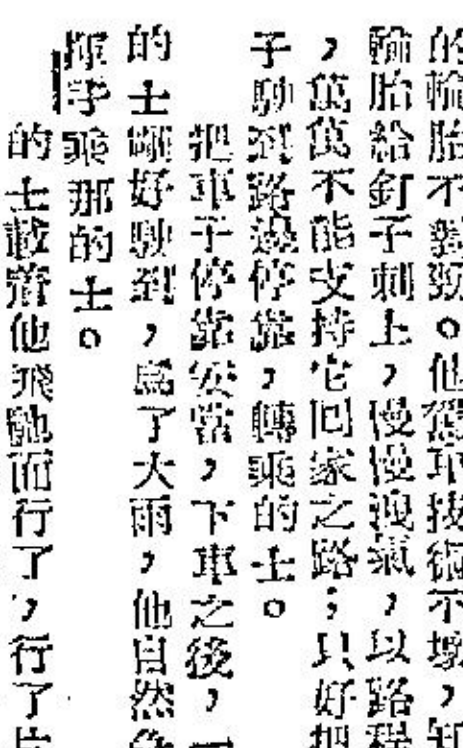 的輪胎不對頸。他駕車技術不壞,知
輪胎給釘子刺上,慢慢洩氣,以路程
,萬萬不能支持它回家之路;只好把
子駛到路邊停靠,轉乘的士。
把車子停靠安當,下車之後,一
的士剛好駛到,爲了大雨,他自然
揮手乘那的士。
的士載着他飛馳而行了,行了片